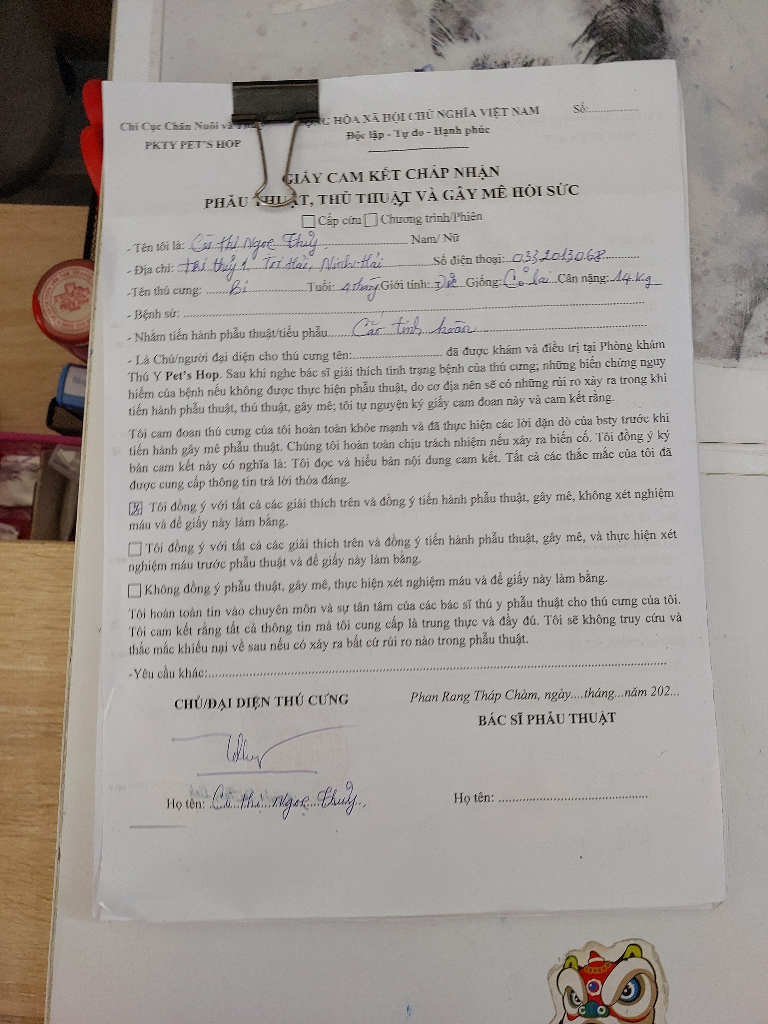 Chi Cục Chăn Nuôi và
CỘNG HÒA XÃ HỘI CHỦ NGHĨA VIỆT NAM
Số:................
PKTY PET'S HOP
Độc lập - Tự do - Hạnh phúc
GIẤY CAM KẾT CHẤP NHẬN
PHẪU THUẬT, THỦ THUẬT VÀ GÂY MÊ HỒI SỨC
☐ Cấp cứu ☐ Chương trình/Phiên
- Tên tôi là: Thị Ngọc Thủy Nam/ Nữ
- Địa chỉ: Tri Hải, Ninh Hải Số điện thoại: 0332013068
-Tên thú cưng: Bi Tuổi: 4 tháng Giới tính: Đực Giống: Cỏ lai Cân nặng: 14 Kg
- Bệnh sử:
- Nhằm tiến hành phẫu thuật/tiểu phẫu tinh hoàn
- Là Chủ/người đại diện cho thú cưng tên:........................ đã được khám và điều trị tại Phòng khám
Thú Y Pet's Hop. Sau khi nghe bác sĩ giải thích tình trạng bệnh của thú cưng; những biến chứng nguy
hiểm của bệnh nếu không được thực hiện phẫu thuật, do cơ địa nên sẽ có những rủi ro xảy ra trong khi
tiến hành phẫu thuật, thủ thuật, gây mê; tôi tự nguyện ký giấy cam đoan này và cam kết rằng.
Tôi cam đoan thú cưng của tôi hoàn toàn khỏe mạnh và đã thực hiện các lời dặn dò của bsty trước khi
tiến hành gây mê phẫu thuật. Chúng tôi hoàn toàn chịu trách nhiệm nếu xảy ra biến cố. Tôi đồng ý ký
bản cam kết này có nghĩa là: Tôi đọc và hiểu bản nội dung cam kết. Tất cả các thắc mắc của tôi đã
được cung cấp thông tin trả lời thỏa đáng.
☒ Tôi đồng ý với tất cả các giải thích trên và đồng ý tiến hành phẫu thuật, gây mê, không xét nghiệm
máu và để giấy này làm bằng.
☐ Tôi đồng ý với tất cả các giải thích trên và đồng ý tiến hành phẫu thuật, gây mê, và thực hiện xét
nghiệm máu trước phẫu thuật và để giấy này làm bằng.
☐ Không đồng ý phẫu thuật, gây mê, thực hiện xét nghiệm máu và để giấy này làm bằng.
Tôi hoàn toàn tin vào chuyên môn và sự tận tâm của các bác sĩ thú y phẫu thuật cho thú cưng của tôi.
Tôi cam kết rằng tất cả thông tin mà tôi cung cấp là trung thực và đầy đủ. Tôi sẽ không truy cứu và
thắc mắc khiếu nại về sau nếu có xảy ra bất cứ rủi ro nào trong phẫu thuật.
-Yêu cầu khác:
CHỦ/ĐẠI DIỆN THÚ CƯNG
Phan Rang Tháp Chàm, ngày....tháng...năm 202...
BÁC SĨ PHẪU THUẬT
Họ tên: Thị Ngọc Thủy
Họ tên: